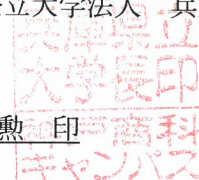 立大学法人 兵
勲 印
兵庫県立
大学長印
神戸商科
キャンパス